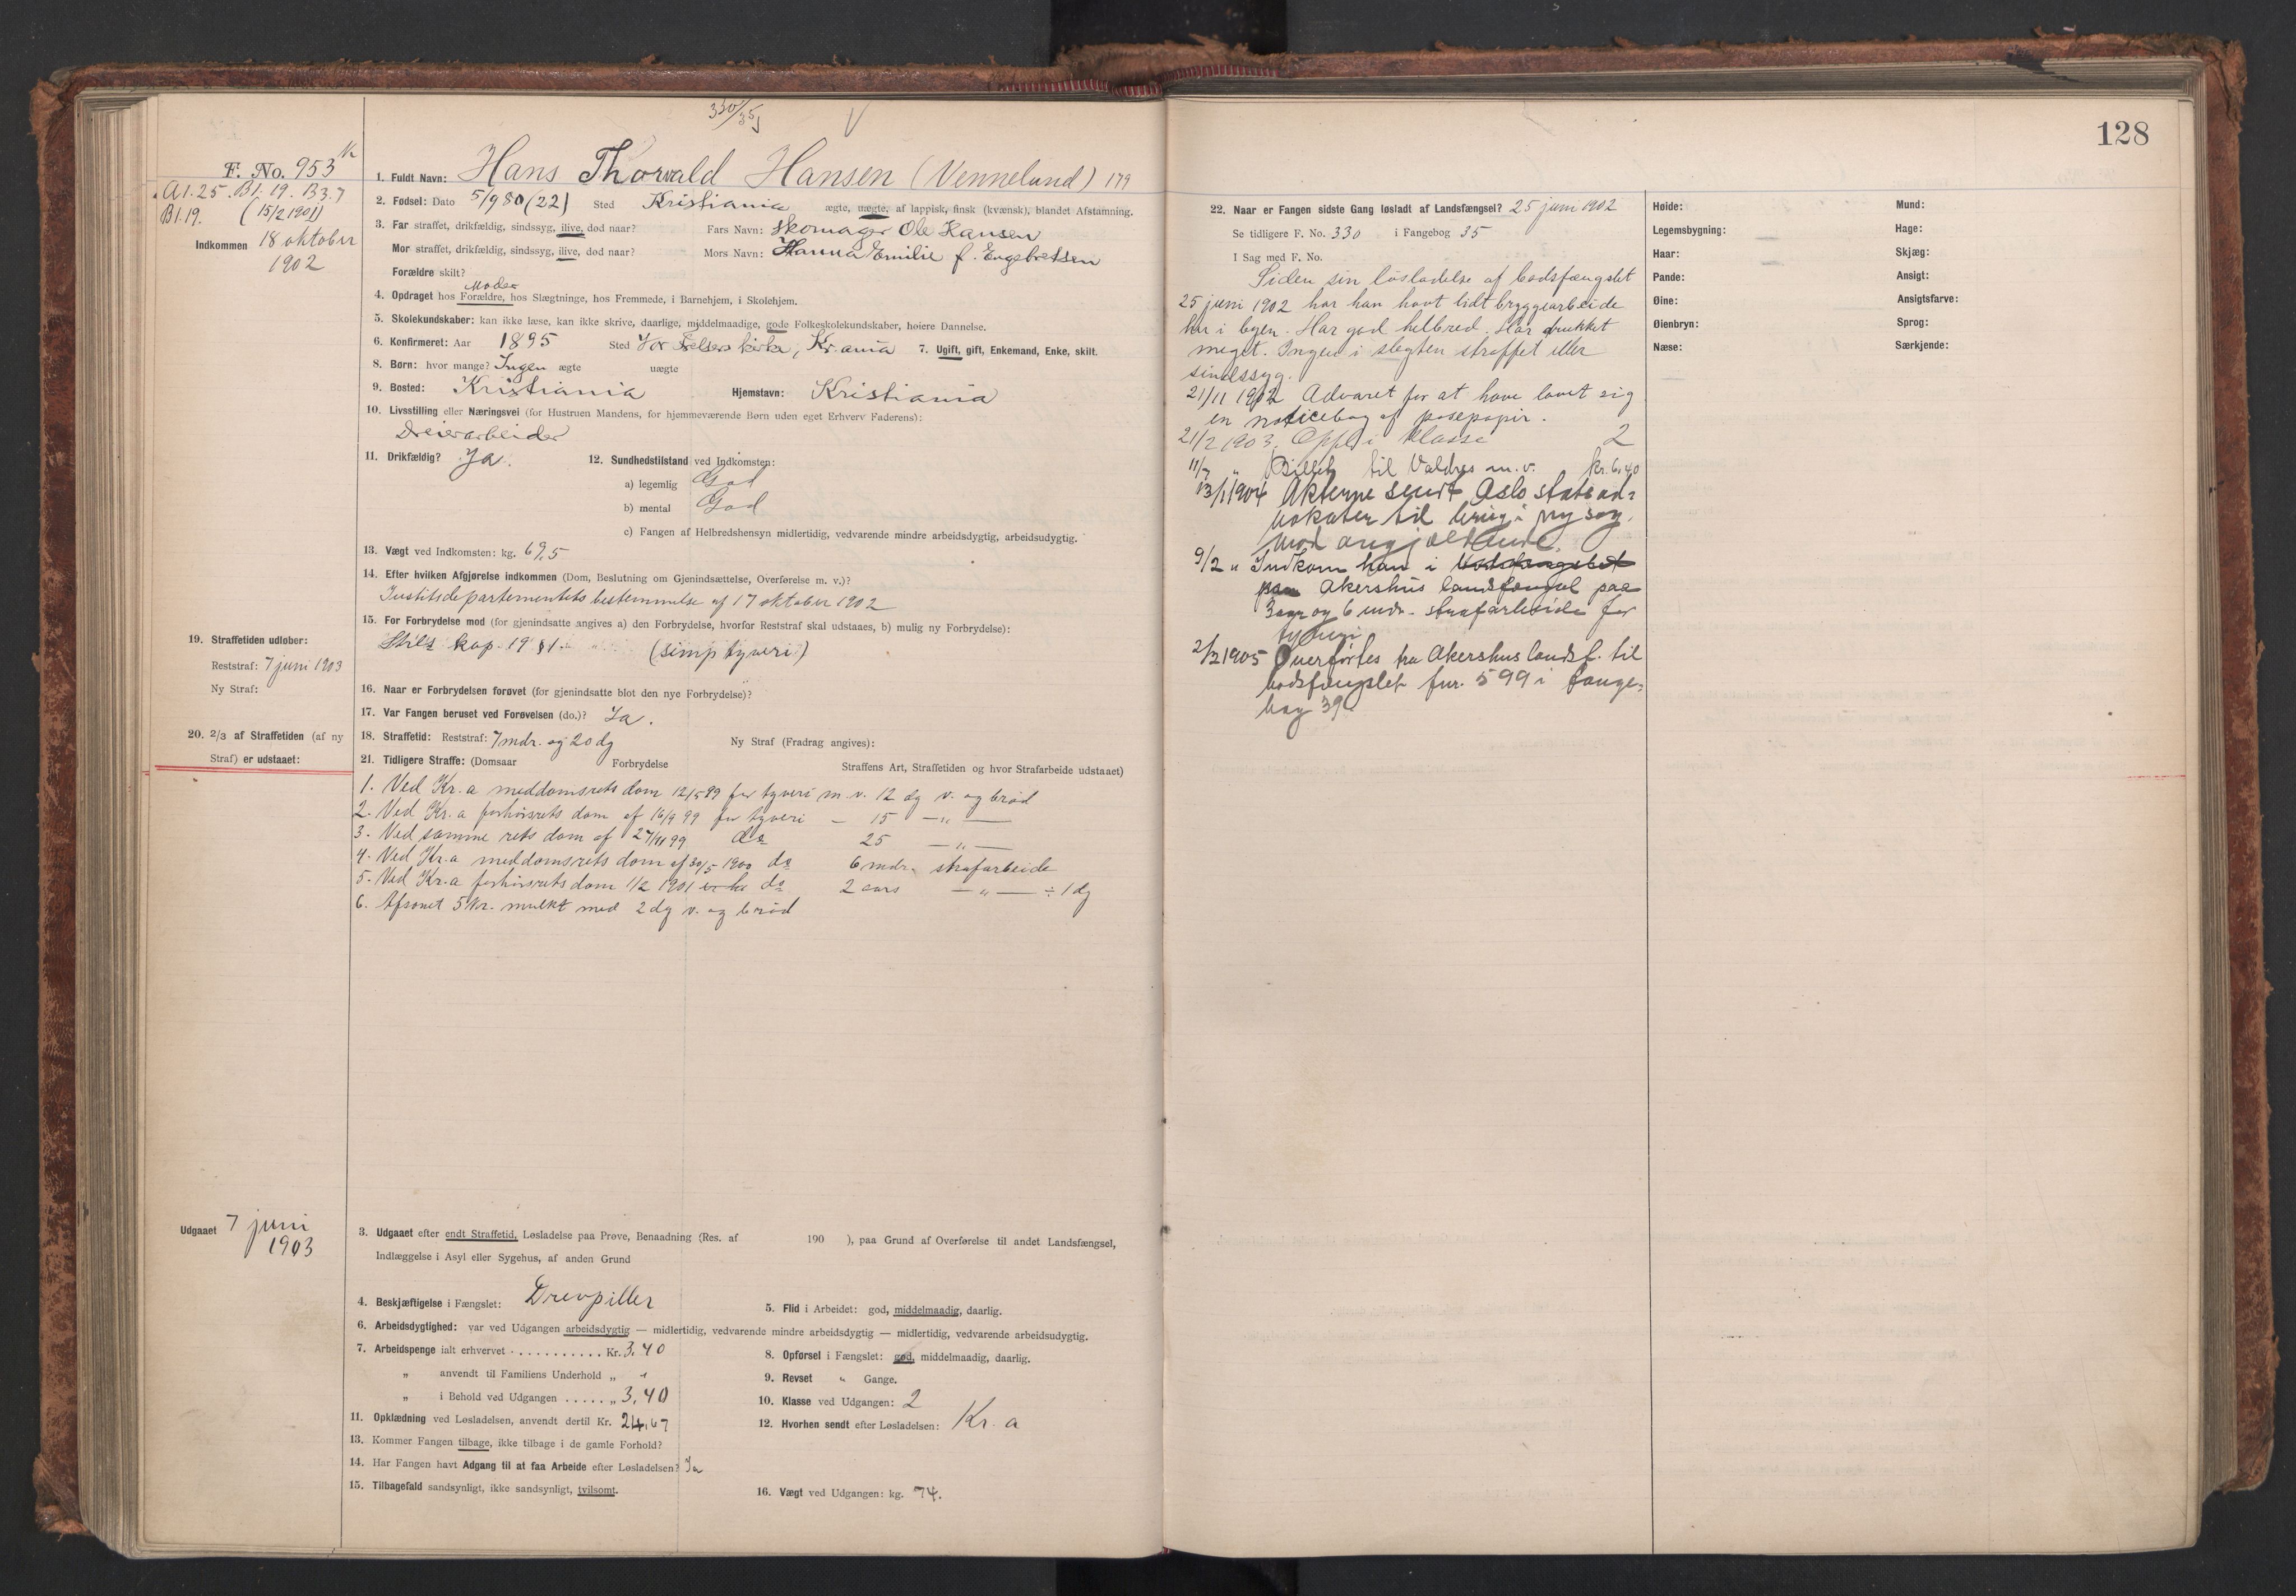 330/35
V
F. No. 953
A1.25. B1.19. B3.7
B1.19. (15/2 1901)
Indkommen 18 oktober
1902
1. Fuldt Navn: Hans Thorvald Hansen (Vennelund) 179
2. Fødsel: Dato 5/9 80 (22) Sted Kristiania ægte, uægte, af lappisk, finsk (kvænsk), blandet Afstamning.
3. Far straffet, drikfældig, sindssyg, ilive, død naar? Fars Navn: Skomager Ole Hansen
Mor straffet, drikfældig, sindssyg, ilive, død naar? Mors Navn: Hanna Emilie f. Engebretsen
Forældre skilt?
Moder
4. Opdraget hos Forældre, hos Slægtninge, hos Fremmede, i Barnehjem, i Skolehjem.
5. Skolekundskaber: kan ikke læse, kan ikke skrive, daarlige, middelmaadige, gode Folkeskolekundskaber, høiere Dannelse.
6. Konfirmeret: Aar 1895 Sted Vor Frelsers kirke, Kr.ania 7. Ugift, gift, Enkemand, Enke, skilt.
8. Børn: hvor mange? Ingen ægte uægte
9. Bosted: Kristiania Hjemstavn: Kristiania
10. Livsstilling eller Næringsvei (for Hustruen Mandens, for hjemmeværende Børn uden eget Erhverv Faderens):
Dreierarbeider
11. Drikfældig? Ja. 12. Sundhedstilstand ved Indkomsten:
a) legemlig God
b) mental God
c) Fangen af Helbredshensyn midlertidig, vedvarende mindre arbeidsdygtig, arbeidsudygtig.
13. Vægt ved Indkomsten: kg. 69,5
14. Efter hvilken Afgjørelse indkommen (Dom, Beslutning om Gjenindsættelse, Overførelse m. v.)?
Justitsdepartementets bestemmelse af 17 oktober 1902
15. For Forbrydelse mod (for gjenindsatte angives a) den Forbrydelse, hvorfor Reststraf skal udstaaes, b) mulig ny Forbrydelse):
kap. 19 § 1. (simp tyveri)
19. Straffetiden udløber:
Reststraf: 7 juni 1903
Ny Straf:
16. Naar er Forbrydelsen forøvet (for gjenindsatte blot den nye Forbrydelse)?
17. Var Fangen beruset ved Forøvelsen (do.)? Ja.
20. 2/3 af Straffetiden (af ny
Straf) er udstaaet:
18. Straffetid: Reststraf: 7 mdr. og 20 dg Ny Straf (Fradrag angives):
21. Tidligere Straffe: (Domsaar Forbrydelse Straffens Art, Straffetiden og hvor Strafarbeide udstaaet)
1. Ved Kr.a meddomsrets dom 12/5 99 for tyveri m. v. 12 dg v. og brød
2. Ved Kr.a forhørsrets dom af 16/9 99 for tyveri – 15 – „ –
3. Ved samme rets dom af 27/11 99 do 25 – „ –
4. Ved Kr.a meddomsrets dom af 30/5 1900 do 6 mdr. strafarbeide
5. Ved Kr.a forhørsrets dom 1/2 1901 do 2 aars – „ – ÷ 1 dg
6. Afsonet 5 kr. mulkt med 2 dg v. og brød
Udgaaet 7 juni
1903
3. Udgaaet efter endt Straffetid, Løsladelse paa Prøve, Benaadning (Res. af 190 ), paa Grund af Overførelse til andet Landsfængsel,
Indlæggelse i Asyl eller Sygehus, af anden Grund
4. Beskjæftigelse i Fængslet: Drevpiller 5. Flid i Arbeidet: god, middelmaadig, daarlig.
6. Arbeidsdygtighed: var ved Udgangen arbeidsdygtig — midlertidig, vedvarende mindre arbeidsdygtig — midlertidig, vedvarende arbeidsudygtig.
7. Arbeidspenge ialt erhvervet . . . . . . . . . . . Kr. 3,40 8. Opførsel i Fængslet: god, middelmaadig, daarlig.
„ anvendt til Familiens Underhold „ „ 9. Revset „ Gange.
„ i Behold ved Udgangen . . . . . „ 3,40 10. Klasse ved Udgangen: 2
11. Opklædning ved Løsladelsen, anvendt dertil Kr. 24,67 12. Hvorhen sendt efter Løsladelsen: Kr. a
13. Kommer Fangen tilbage, ikke tilbage i de gamle Forhold?
14. Har Fangen havt Adgang til at faa Arbeide efter Løsladelsen? Ja
15. Tilbagefald sandsynligt, ikke sandsynligt, tvilsomt. 16. Vægt ved Udgangen: kg. 74.
128
22. Naar er Fangen sidste Gang løsladt af Landsfængsel? 25 juni 1902
Se tidligere F. No. 330 i Fangebog 35
I Sag med F. No.
Siden sin løsladelse af bodsfængslet
25 juni 1902 har han havt lidt bryggearbeide
her i byen. Har god helbred. Har drukket
meget. Ingen i slegten straffet eller
sindssyg.
21/11 1902 Advaret for at have lavet sig
en noticebog af posepapir.
21/2 1903. Oppl. i klasse 2
11/7 „ Billet til Valdres m. v. kr. 6,40
13/1 1904 Akterne sendt Oslo statsad=
vokater til brug i ny sag
mod angjældende.
9/2 „ Indkom han i
Akershus landsfængsel paa
3 aar og 6 mdr. strafarbeide for
tyveri
2/3 1905 Overførtes fra Akershus landsf. til
bodsfængslet fnr. 599 i fange=
bog 39
Høide: Mund:
Legemsbygning: Hage:
Haar: Skjæg:
Pande: Ansigt:
Øine: Ansigtsfarve:
Øienbryn: Sprog:
Næse: Særkjende: